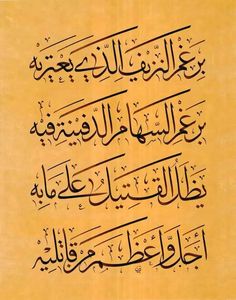 برغم النزيف الذي يعتريه
برغم السهام الدفينة فيه
يظل القتيل على ما به
أجل وأعظم من قاتليه